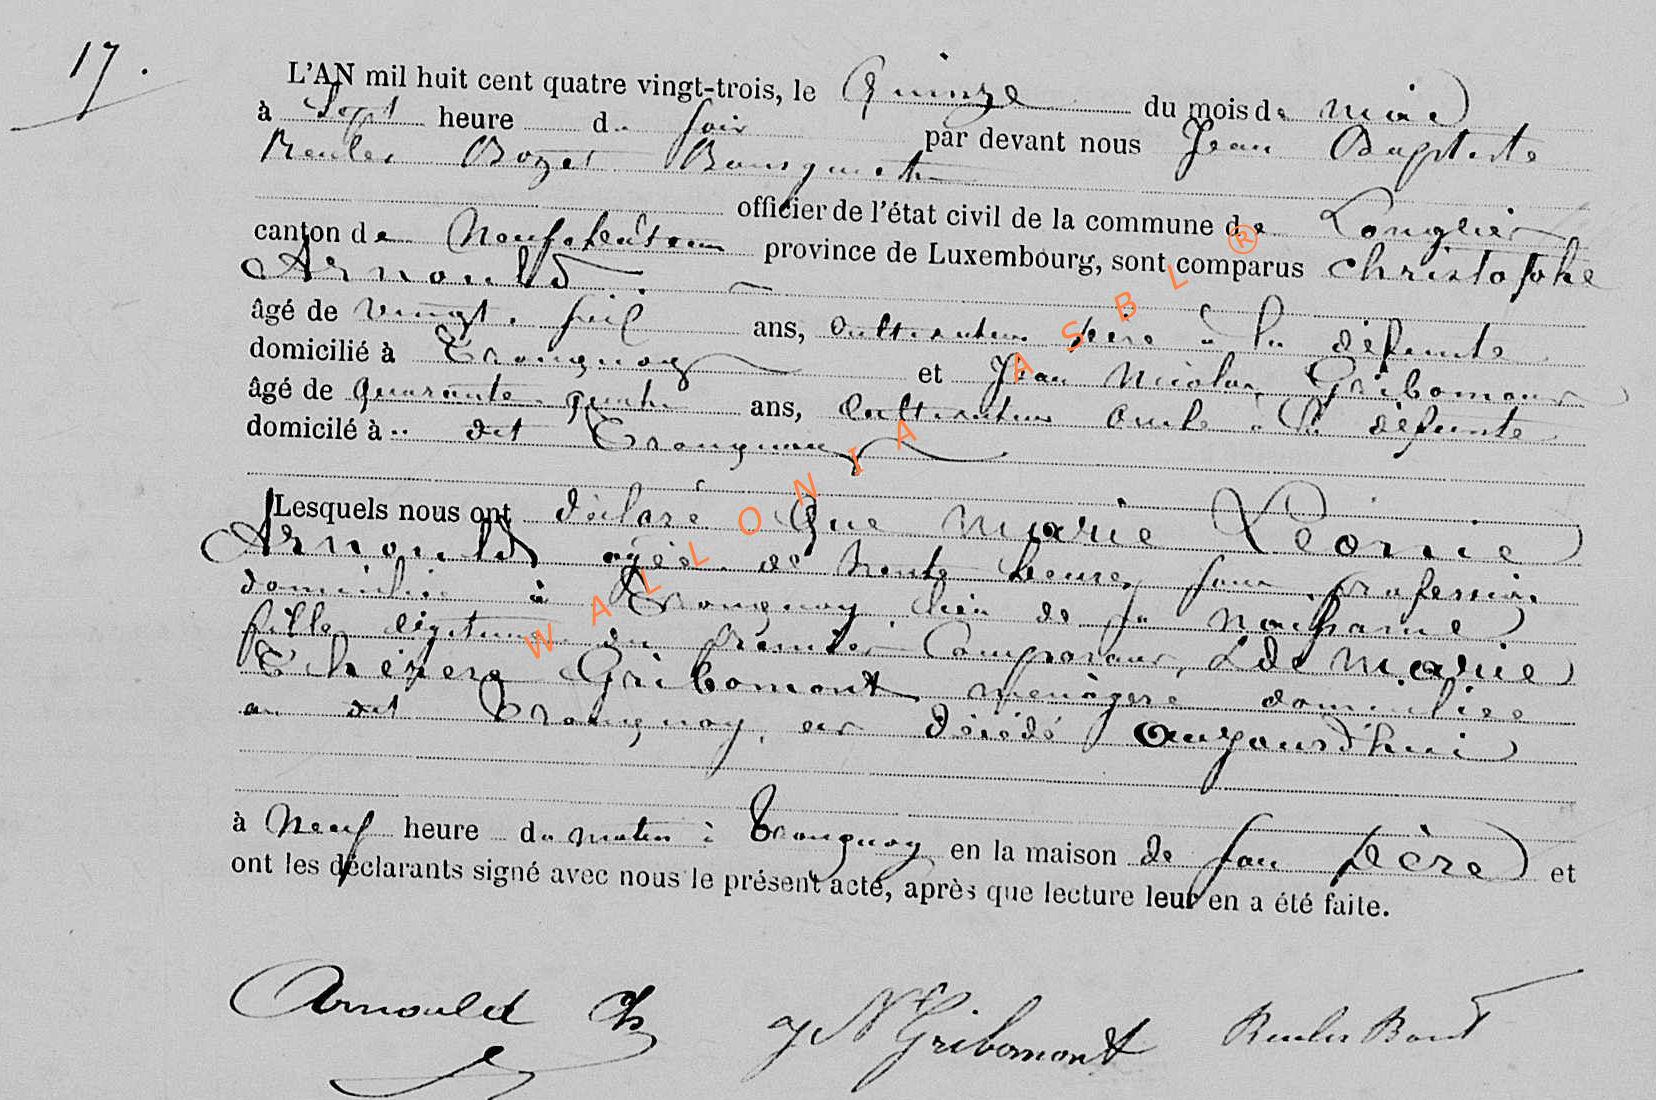 17.
L'AN mil huit cent quatre vingt-trois, le Quinze du mois de mai
à Sept heure du soir par devant nous Jean Baptiste
Reuler Bozet Bourgmestre
officier de l'état civil de la commune de Longlier
canton de Neufchâteau province de Luxembourg, sont comparus Christophe
Arnould
âgé de vingt huit ans, Cultivateur père à la défunte
domicilié à Tronquoy et Jean Nicolas Gribomont
âgé de quarante quatre ans, Cultivateur oncle à la défunte
domicilé à dit Tronquoy
Lesquels nous ont déclaré Que Marie Léonie
Arnould agée de trente heures sans profession
domiciliée à Tronquoy lieu de sa naissance
fille légitime du premier Comparant, & de Marie
Thérèse Gribomont ménagère domiciliée
au dit Tronquoy, est décédé aujourd'hui
à Neuf heure du matin à Tronquoy en la maison de son père et
ont les déclarants signé avec nous le présent acte, après que lecture leur en a été faite.
Arnould Ch JN Gribomont
WALLONIA ASBL ®